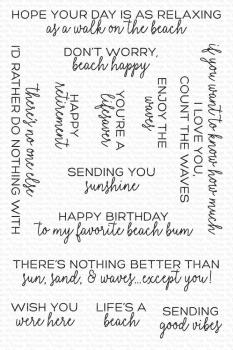 HOPE YOUR DAY IS AS RELAXING
as a walk on the beach
DON'T WORRY,
beach happy
I'D RATHER DO NOTHING WITH
there's no one else
HAPPY
retirement
YOU'RE A
lifesaver
ENJOY THE
waves
if you want to know how much
I LOVE YOU,
COUNT THE WAVES
SENDING YOU
sunshine
HAPPY BIRTHDAY
to my favorite beach bum
THERE'S NOTHING BETTER THAN
sun, sand, & waves...except you!
WISH YOU
were here
LIFE'S A
beach
SENDING
good vibes